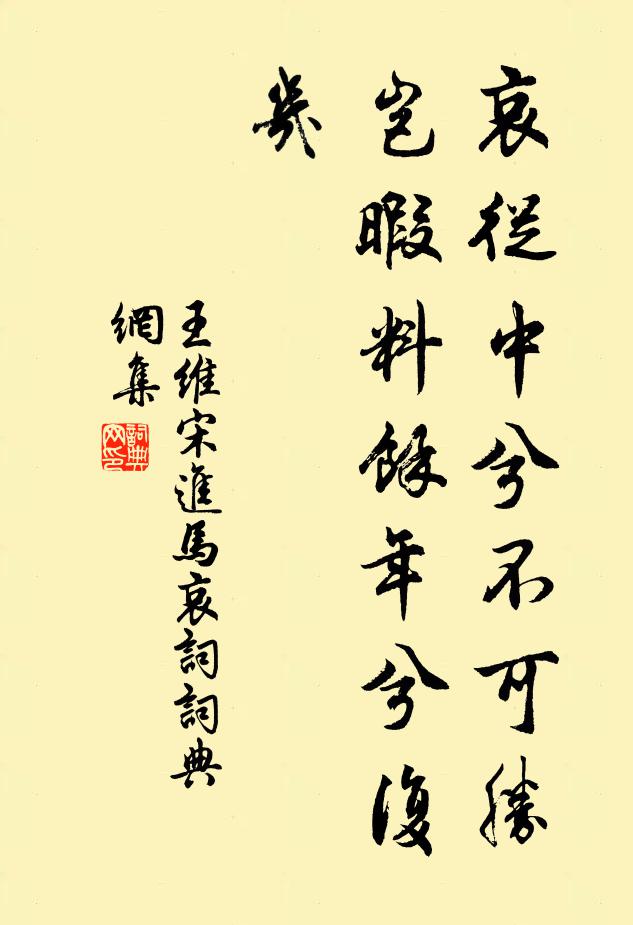 哀從中兮不可勝
豈暇料餘年兮復
幾
王維宋進馬哀詞詞典
網集
詞典
网印